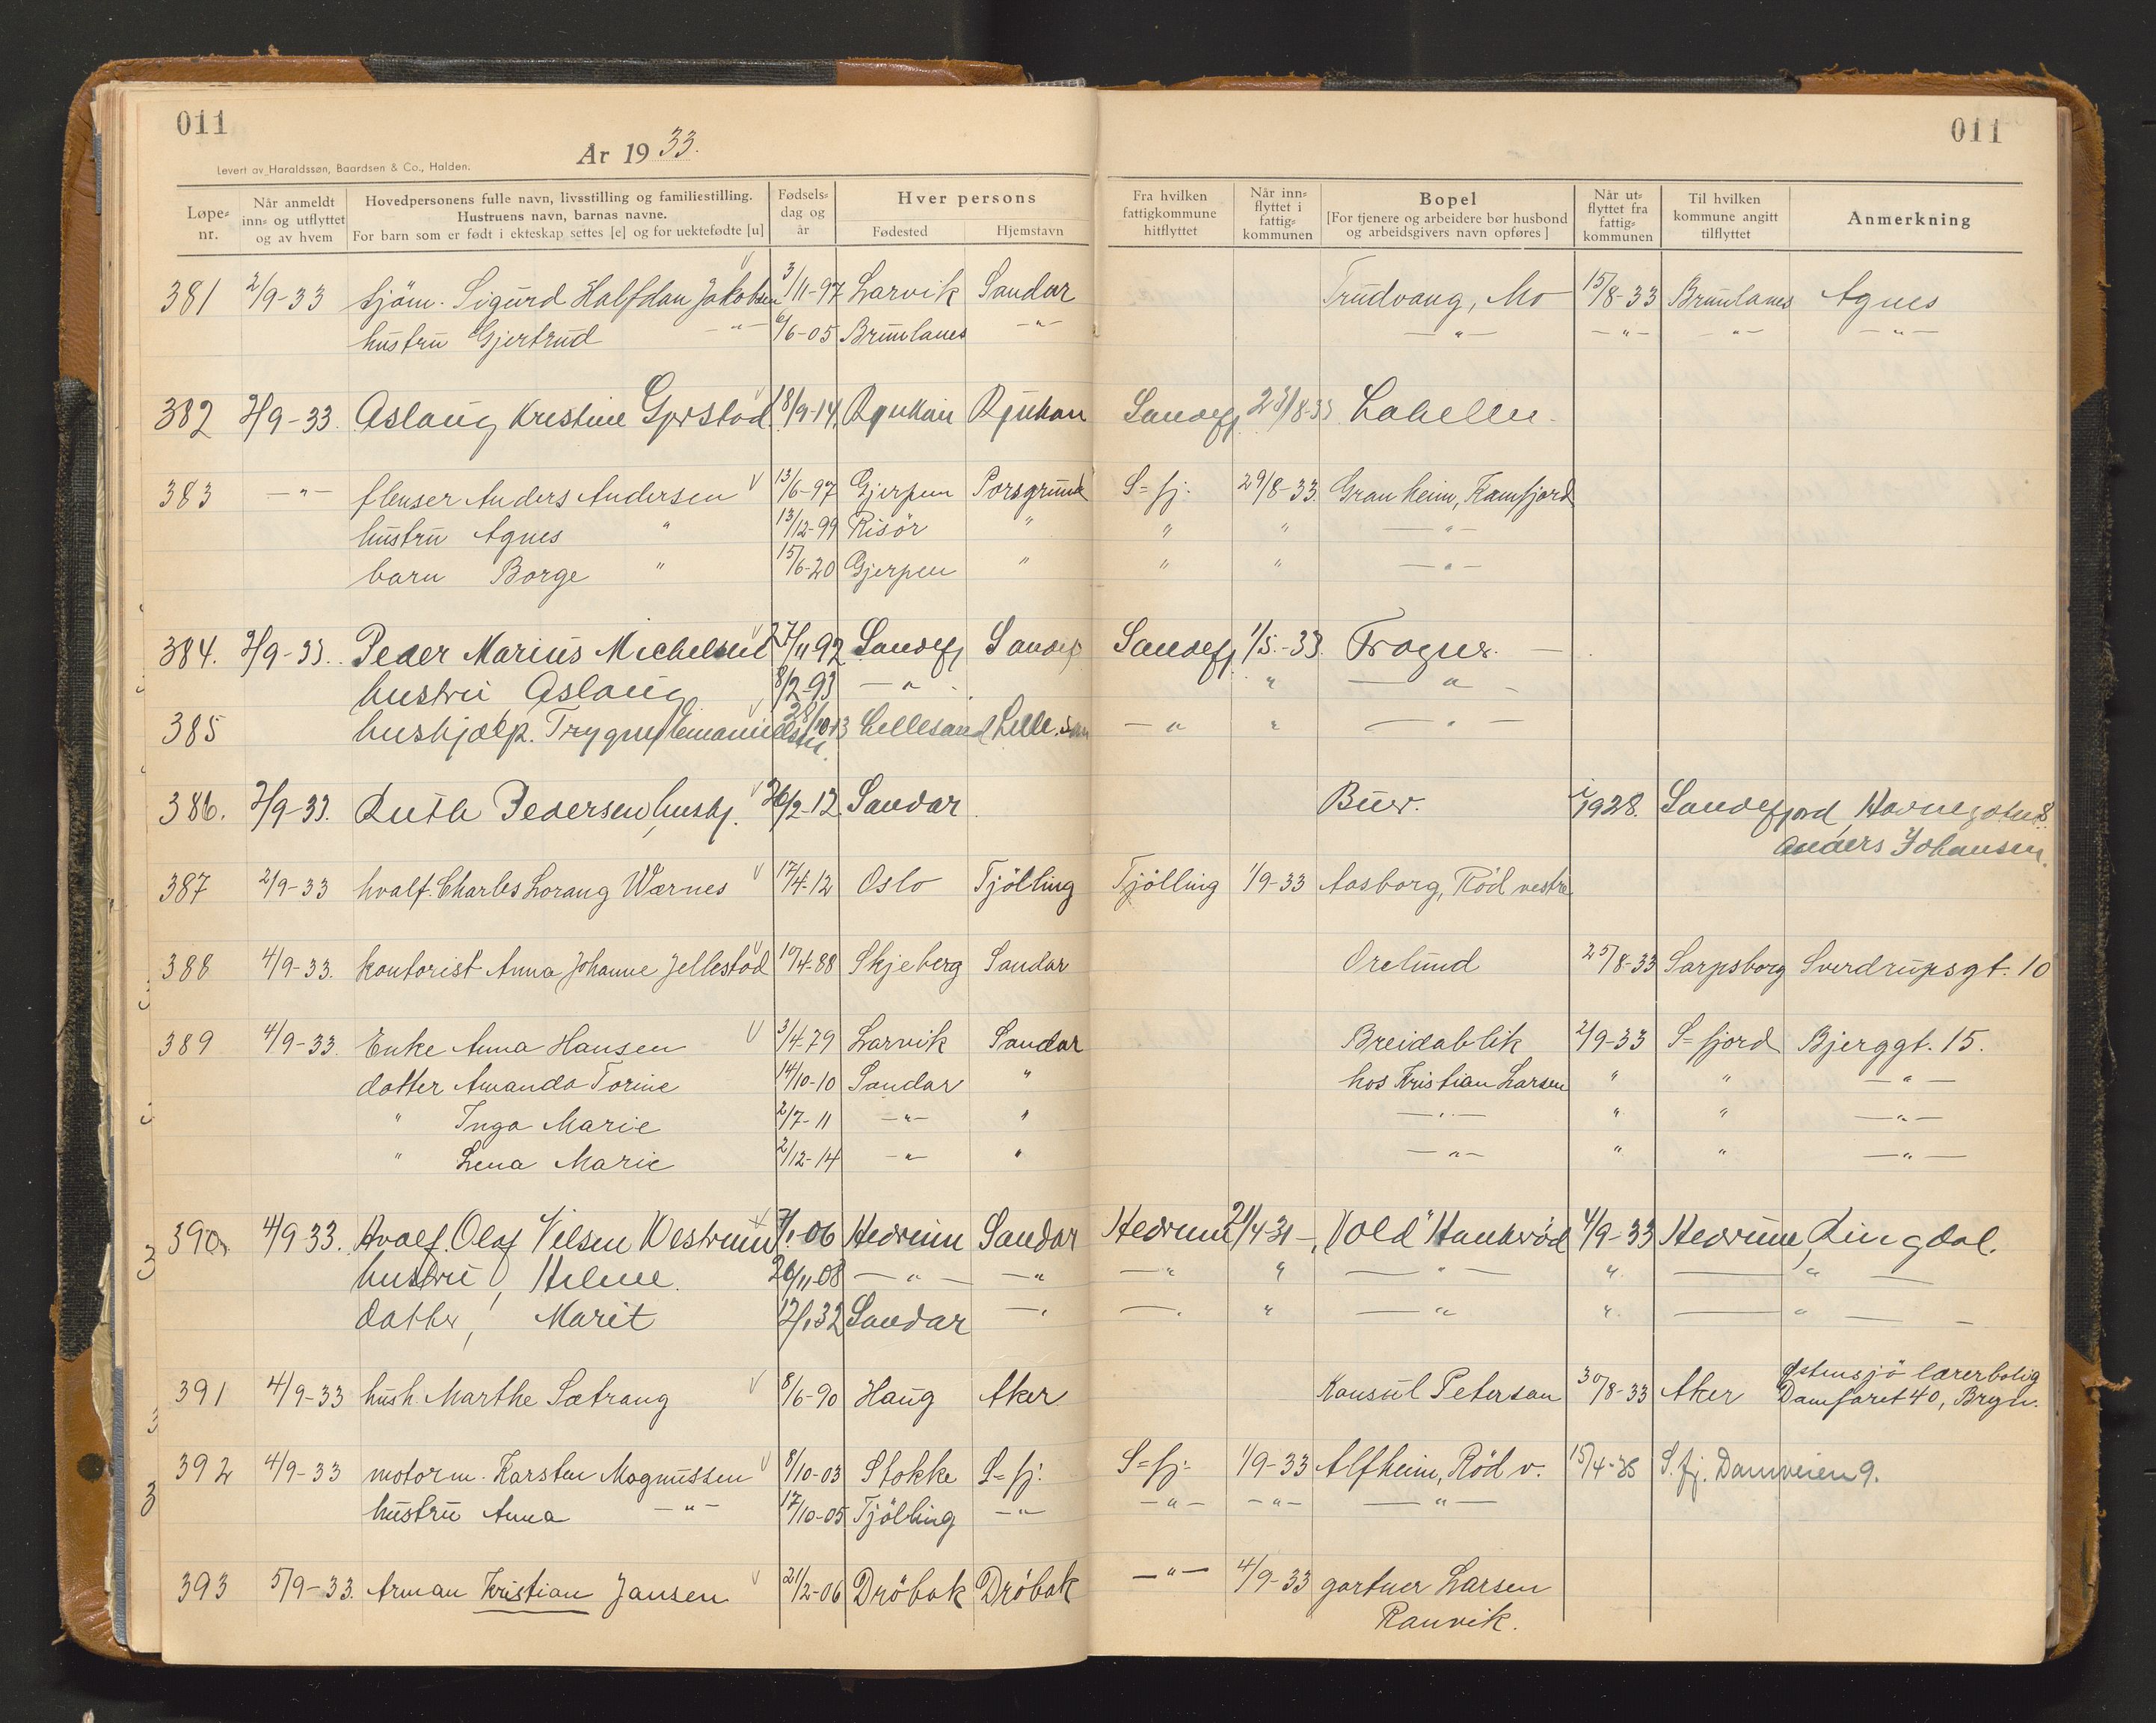 011
År 1933.
011
Levert av Haraldssøn, Baardsen & Co., Halden.
Løpe-nr. Når anmeldt inn- og utflyttet og av hvem Hovedpersonens fulle navn, livsstilling og familiestilling. Hustruens navn, barnas navne. For barn som er født i ekteskap settes [e] og for uektefødte [u] Fødsels-dag og år Hver persons Fødested Hjemstavn Fra hvilken fattigkommune hitflyttet Når inn-flyttet i fattig-kommunen Bopel [For tjenere og arbeidere bør husbond og arbeidsgivers navn opføres] Når ut-flyttet fra fattig-kommunen Til hvilken kommune angitt tilflyttet Anmerkning
381 2/9-33 sjöm. Sigurd Halfdan Jakobsen 3/11-97 Larvik Sandar Trudvang, Mo 15/8-33 Brunlanes Agnes
hustru Gjertrud -"- 6/6-05 Brunlanes -"- -"- -"- -"- -"-
382 2/9-33. Aslaug Kristine 18/9-14. Rjukan Rjukan Sandefj. 23/8-33 Labellu.
383 -"- flenser Anders Andersen 13/6-97 Gjerpen Porsgrund S=fj. 29/8-33. Granheim, Kamfjord
hustru Agnes " 13/12-99 Risör " " " -"-
barn Borge " 15/6-20 Gjerpen " " " -"-
384. 2/9-33. Peder Marius Michelsen 27/11 92 Sandefj Sandefj Sandefj. 1/5.-33. Frogner. -
hustru Aslaug 8/2-93 -"- " -"-
385 hushjælp. Trygve Emanuelsen 28/10-13 Lillesand Lille.san -"- " -"-
386. 2/9-33. Ruth Pedersen, hushj. 26/2-12. Sandar Buer. i 1928. Sandefjord Havnegaten 8.
Anders Johansen.
387 2/9-33 hvalf. Charles Lorang Wærnes 17/4-12 Oslo Tjölling Tjölling 1/9-33 Aasborg, Röd vestre
388 4/9-33. kontorist Anna Johanne Jellestad 10/4-88 Skjeberg Sandar Orelund 25/8-33 Sarpsborg Sverdrupsgt. 10
389 4/9-33. Enke Anna Hansen 3/4-79 Larvik Sandar Breidablik 2/9-33 S=fjord Bjerggt. 15.
datter Amanda Torine 14/10-10 Sandar " hos Kristian Larsen " " -"-
" Inga Marie 2/7-11 -"- " -"- " " -"-
" Lena Marie 2/12-14 -"- " -"- " " -"-
390. 4/9 33. Hvalf. Olaf Nilsen Westrum 7/1-06 Hedrum Sandar Hedrum 21/4-31 -, "Vold" Haukerød 4/9-33 Hedrum, Lingdal.
hustru, Helene. 26/11-08 -"- -"- -"- " -"- " -"-
datter, Marit 12/1 32 Sandar -"- -"- " -"- " -"-
391 4/9-33 hush. Marthe Sætrang 8/6-90 Haug Aker Konsul Peterson 30/8-33 Aker Østensjö lærerbolig
Damfaret 40, Bryn.
392 4/9-33 motorm. Karsten Magnussen 8/10-03 Stokke S=fj. S=fj. 1/9-33 Alfheim, Röd v. 15/4-35 S.fj. Damveien 9.
hustru Anna -"- 17/10-05 Tjölling -"- -"- -"- -"-
393 5/9-33. Arman Kristian Jansen 21/2-06 Dröbak Dröbak -"- 4/9-33 gartner Larsen
Ranvik.